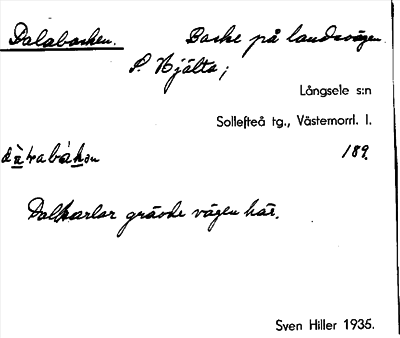 Dalabacken. Backe på landsvägen
S. Hjälta;
Långsele s:n
Sollefteå tg., Västernorrl. l.
189.
Dalkarlar grävde vägen här.
Sven Hiller 1935.